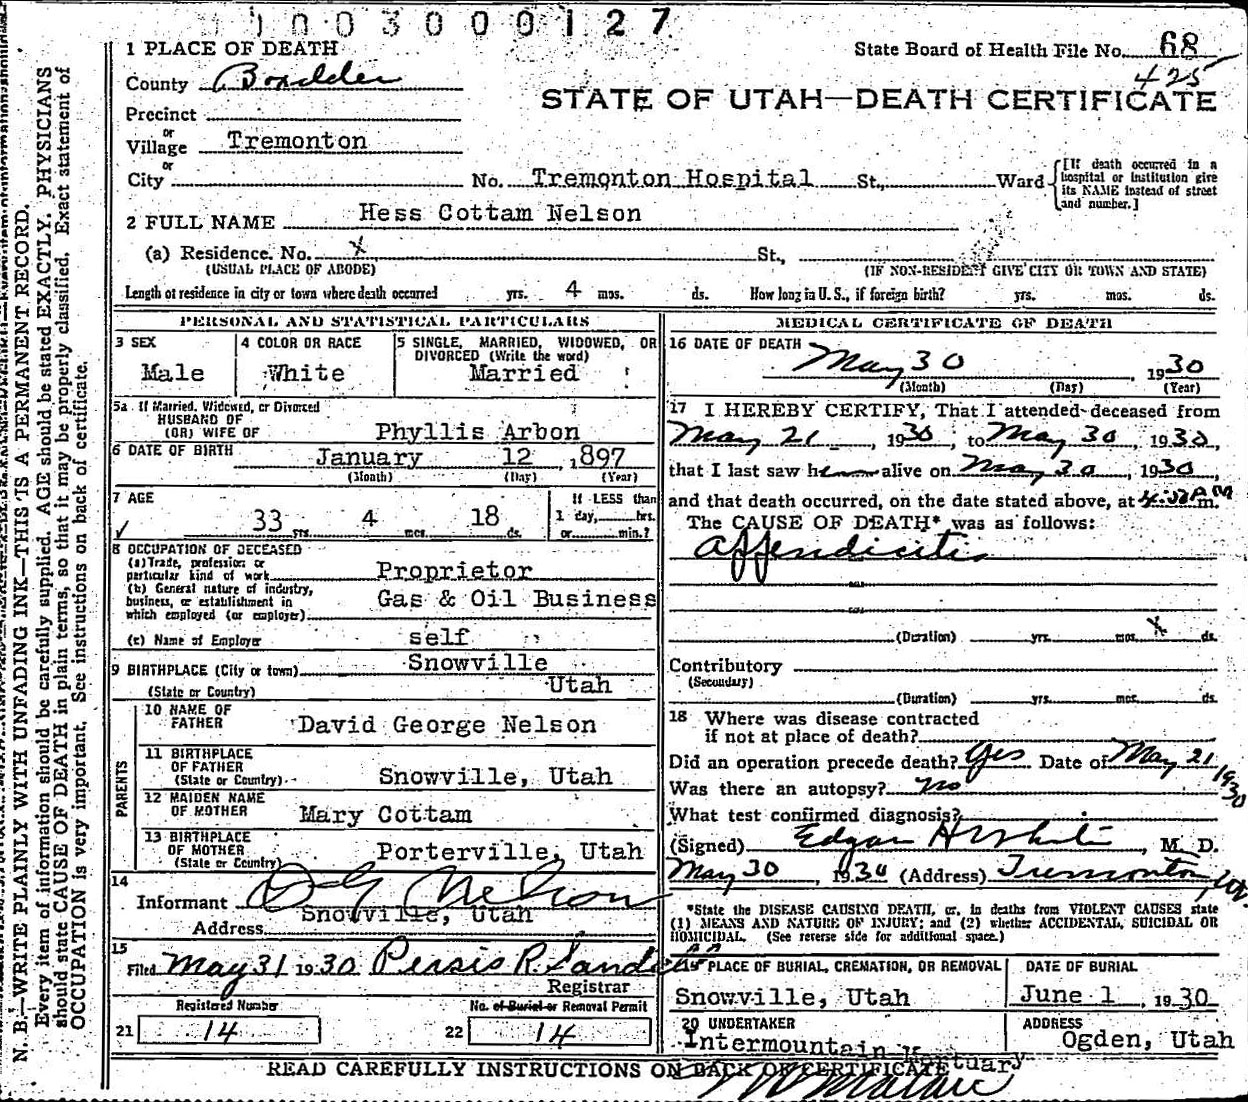 1003000127
1 PLACE OF DEATH
State Board of Health File No. 68
425
County Boxelder
STATE OF UTAH—DEATH CERTIFICATE
Precinct
or
Village Tremonton
or
City No. Tremonton Hospital St., Ward [If death occurred in a hospital or institution give its NAME instead of street and number.]
2 FULL NAME Hess Cottam Nelson
(a) Residence. No. X St.,
(USUAL PLACE OF ABODE) (IF NON-RESIDENT GIVE CITY OR TOWN AND STATE)
Length of residence in city or town where death occurred yrs. 4 mos. ds. How long in U. S., if foreign birth? yrs. mos. ds.
PERSONAL AND STATISTICAL PARTICULARS
3 SEX
Male
4 COLOR OR RACE
White
5 SINGLE, MARRIED, WIDOWED, OR
DIVORCED (Write the word)
Married
5a If Married, Widowed, or Divorced
HUSBAND OF
(OR) WIFE OF Phyllis Arbon
6 DATE OF BIRTH January 12 ,897
(Month) (Day) (Year)
7 AGE
33 yrs. 4 mos. 18 ds.
If LESS than
1 day, hrs.
or min.?
8 OCCUPATION OF DECEASED
(a) Trade, profession or
particular kind of work Proprietor
(b) General nature of industry,
business, or establishment in
which employed (or employer) Gas & Oil Business
(c) Name of Employer self
9 BIRTHPLACE (City or town) Snowville
(State or Country) Utah
PARENTS
10 NAME OF
FATHER David George Nelson
11 BIRTHPLACE
OF FATHER
(State or Country) Snowville, Utah
12 MAIDEN NAME
OF MOTHER Mary Cottam
13 BIRTHPLACE
OF MOTHER
(State or Country) Porterville, Utah
14
Informant D G Nelson
Address Snowville, Utah
15
Filed May 31 1930 Persis R.
Registrar
Registered Number
21 14
No. of Burial or Removal Permit
22 14
MEDICAL CERTIFICATE OF DEATH
16 DATE OF DEATH
May 30, 1930
(Month) (Day) (Year)
17 I HEREBY CERTIFY, That I attended deceased from
May 21, 1930, to May 30, 1930,
that I last saw h alive on May 30, 1930,
and that death occurred, on the date stated above, at P M m.
The CAUSE OF DEATH* was as follows:
Appendicitis
(Duration) yrs. mos. X ds.
Contributory
(Secondary)
(Duration) yrs. mos. ds.
18 Where was disease contracted
if not at place of death?
Did an operation precede death? Yes Date of May 21 1930
Was there an autopsy? No
What test confirmed diagnosis?
(Signed) Edgar H White, M. D.
May 30, 1930 (Address) Tremonton, Ut.
*State the DISEASE CAUSING DEATH, or, in deaths from VIOLENT CAUSES state
(1) MEANS AND NATURE OF INJURY; and (2) whether ACCIDENTAL, SUICIDAL OR
HOMICIDAL. (See reverse side for additional space.)
19 PLACE OF BURIAL, CREMATION, OR REMOVAL
Snowville, Utah
DATE OF BURIAL
June 1, 1930
20 UNDERTAKER
Intermountain Mortuary
ADDRESS
Ogden, Utah
READ CAREFULLY INSTRUCTIONS ON BACK OF CERTIFICATE
N. B.—WRITE PLAINLY WITH UNFADING INK—THIS IS A PERMANENT RECORD.
Every item of information should be carefully supplied. AGE should be stated EXACTLY. PHYSICIANS
should state CAUSE OF DEATH in plain terms, so that it may be properly classified. Exact statement of
OCCUPATION is very important. See instructions on back of certificate.